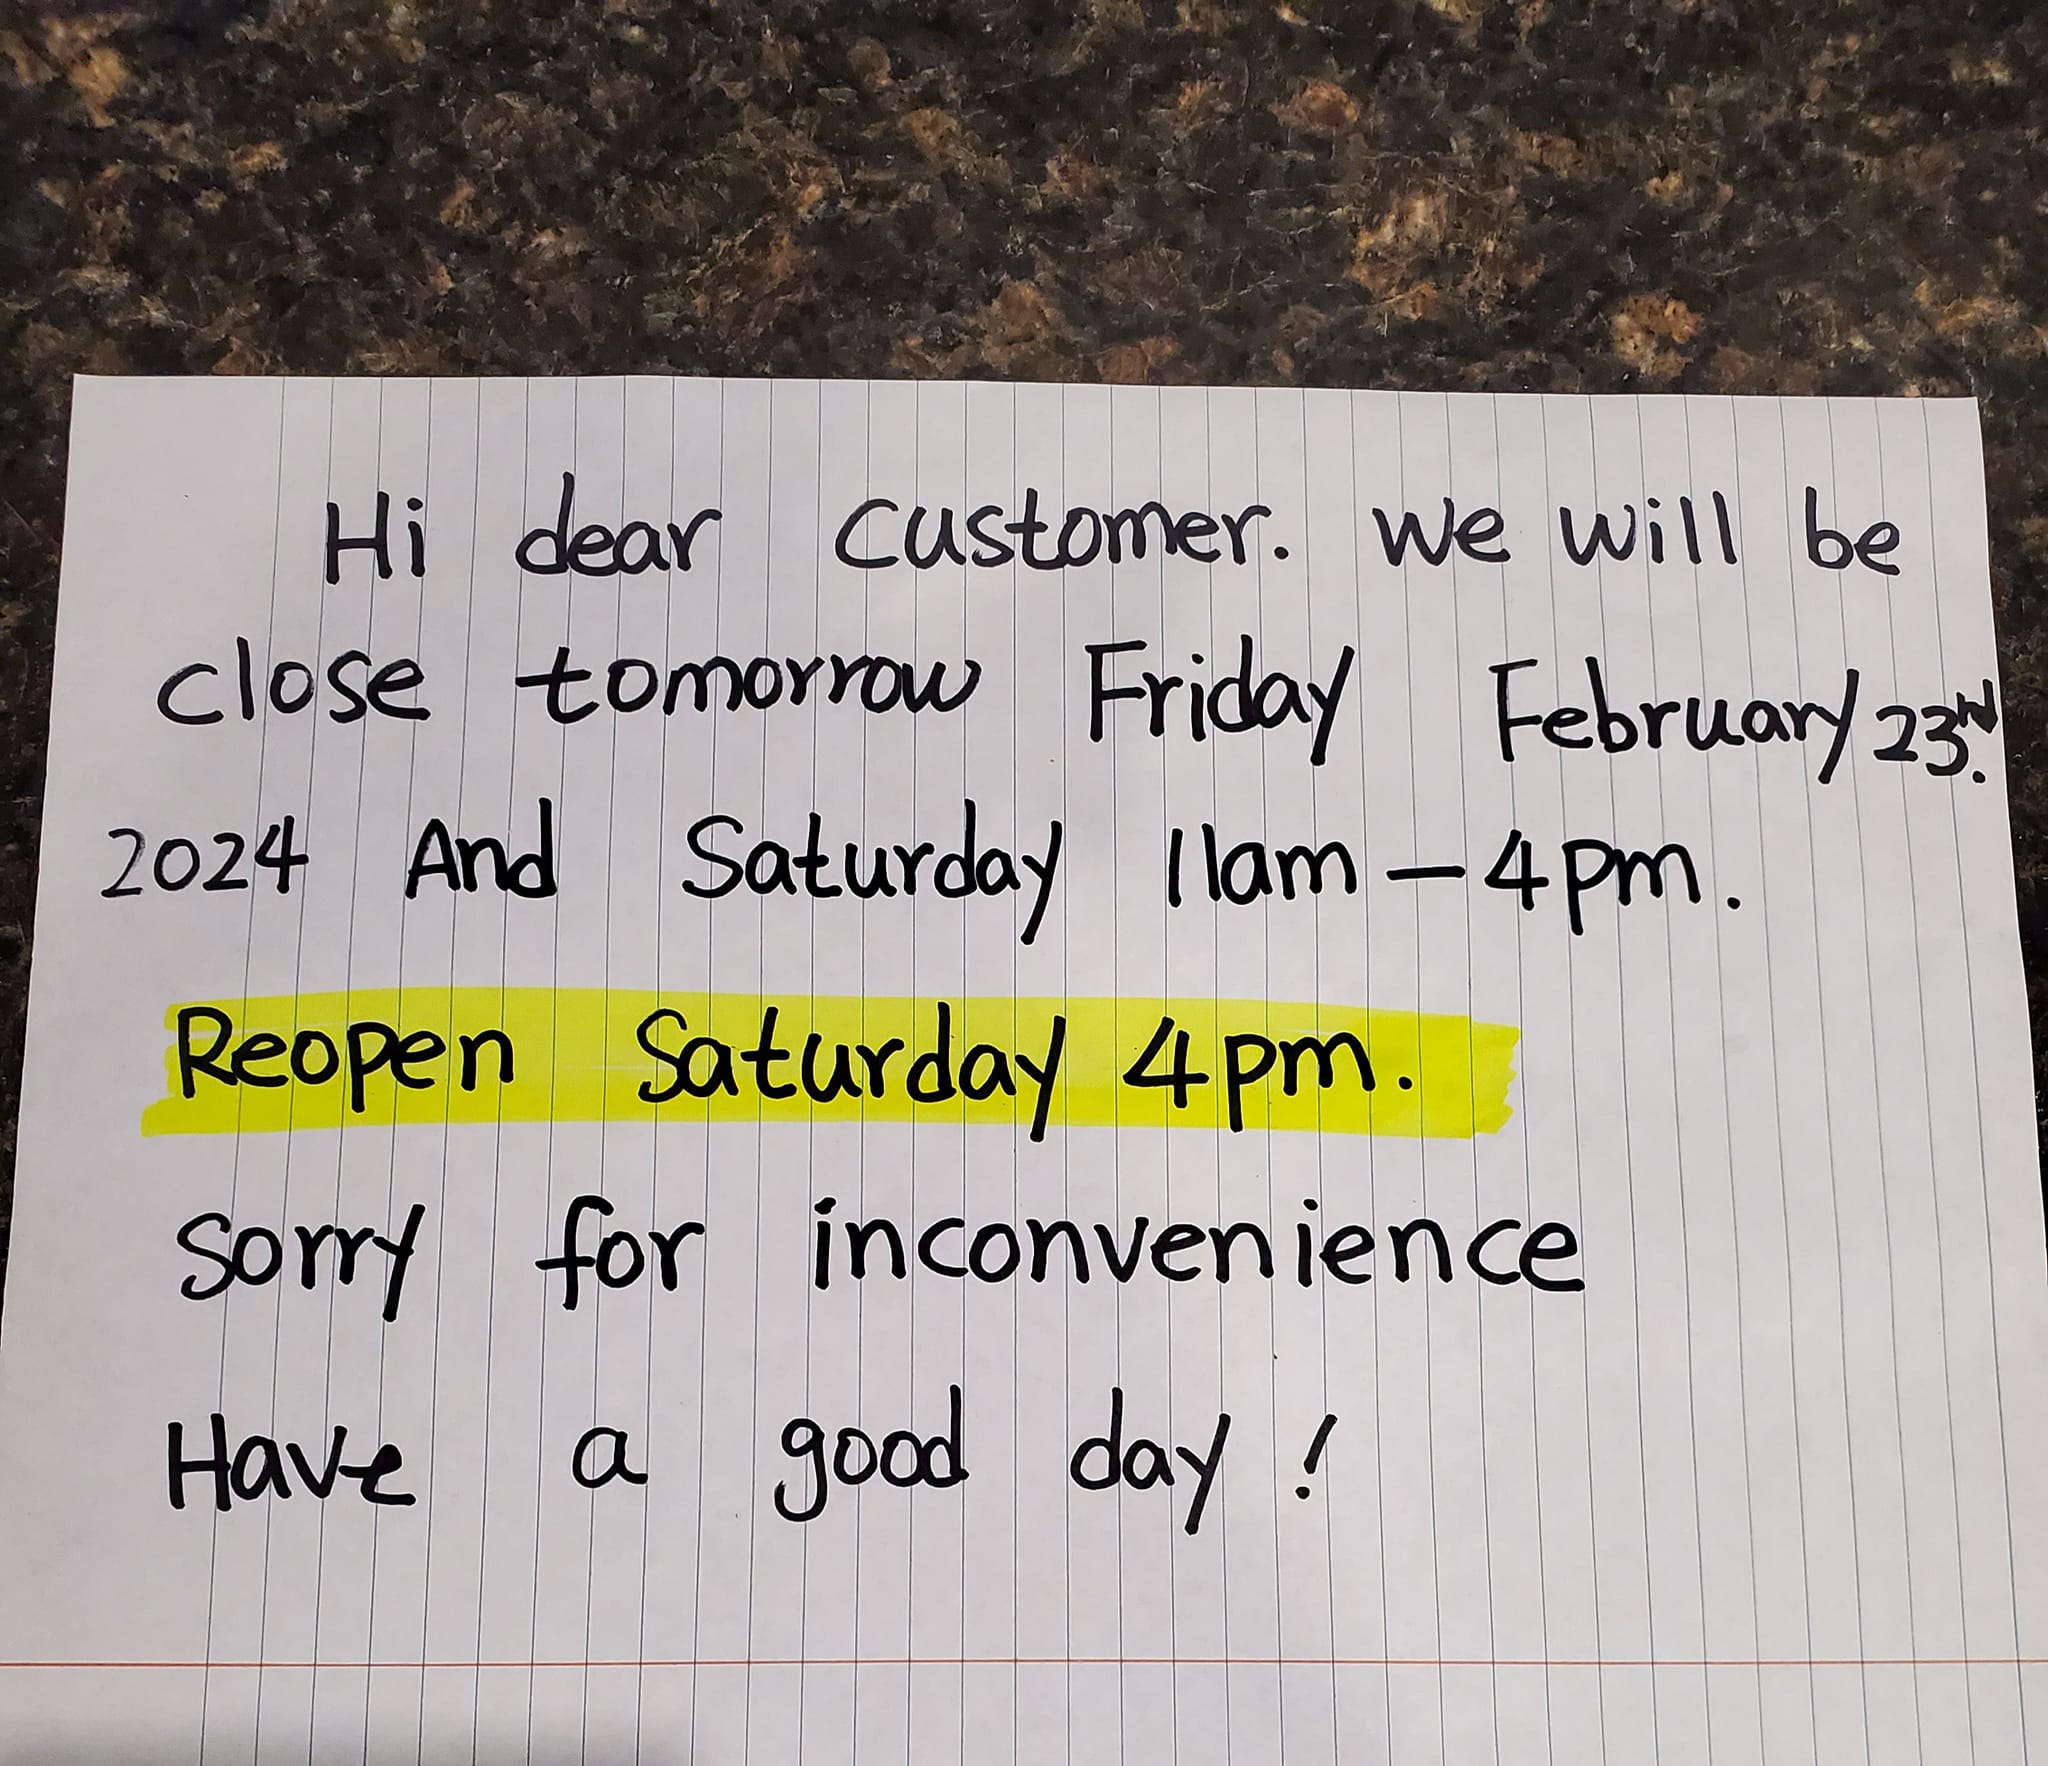 Hi dear customer. we will be
close tomorrow Friday February 23rd.
2024 And Saturday 11am - 4pm.
Reopen Saturday 4pm.
Sorry for inconvenience
Have a good day!